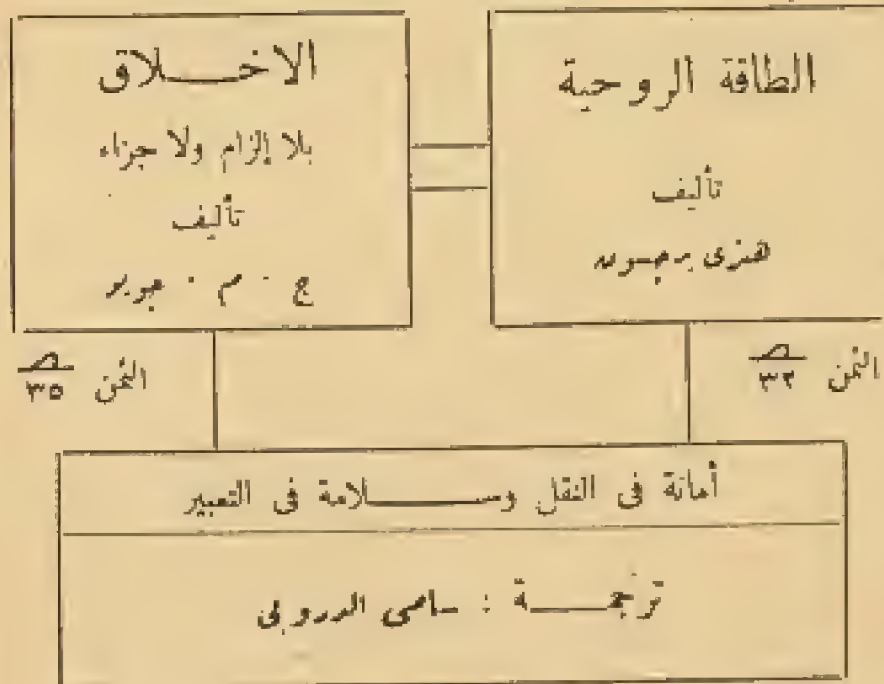 الطاقة الروحية
تأليف
هنرى برجسون
الثمن ٣٢
الاخـــلاق
بلا إلزام ولا جزاء
تأليف
ج . م . جويو
الثمن ٣٥
أمانة فى النقل وســـــلامة فى التعبير
ترجمـــة : سامى الدروبى